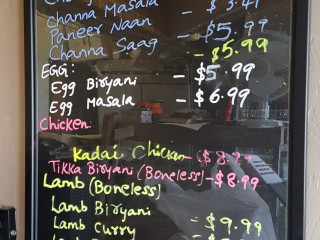 Channa Masala - $ 3.49
Paneer Naan - $5.99
Channa Saag - $5.99
EGG:
Egg Biryani - $5.99
Egg Masala - $6.99
Chicken
Kadai Chicken - $8.99
Tikka Biryani (Boneless) - $8.99
Lamb (Boneless)
Lamb Biryani
Lamb Curry - $9.99